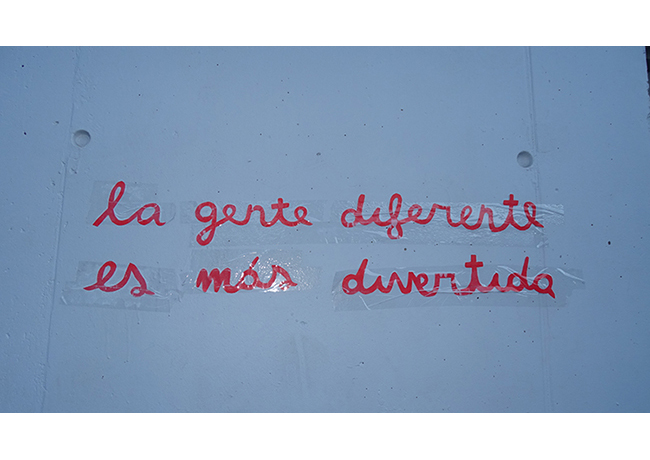 la gente diferente
es más divertida